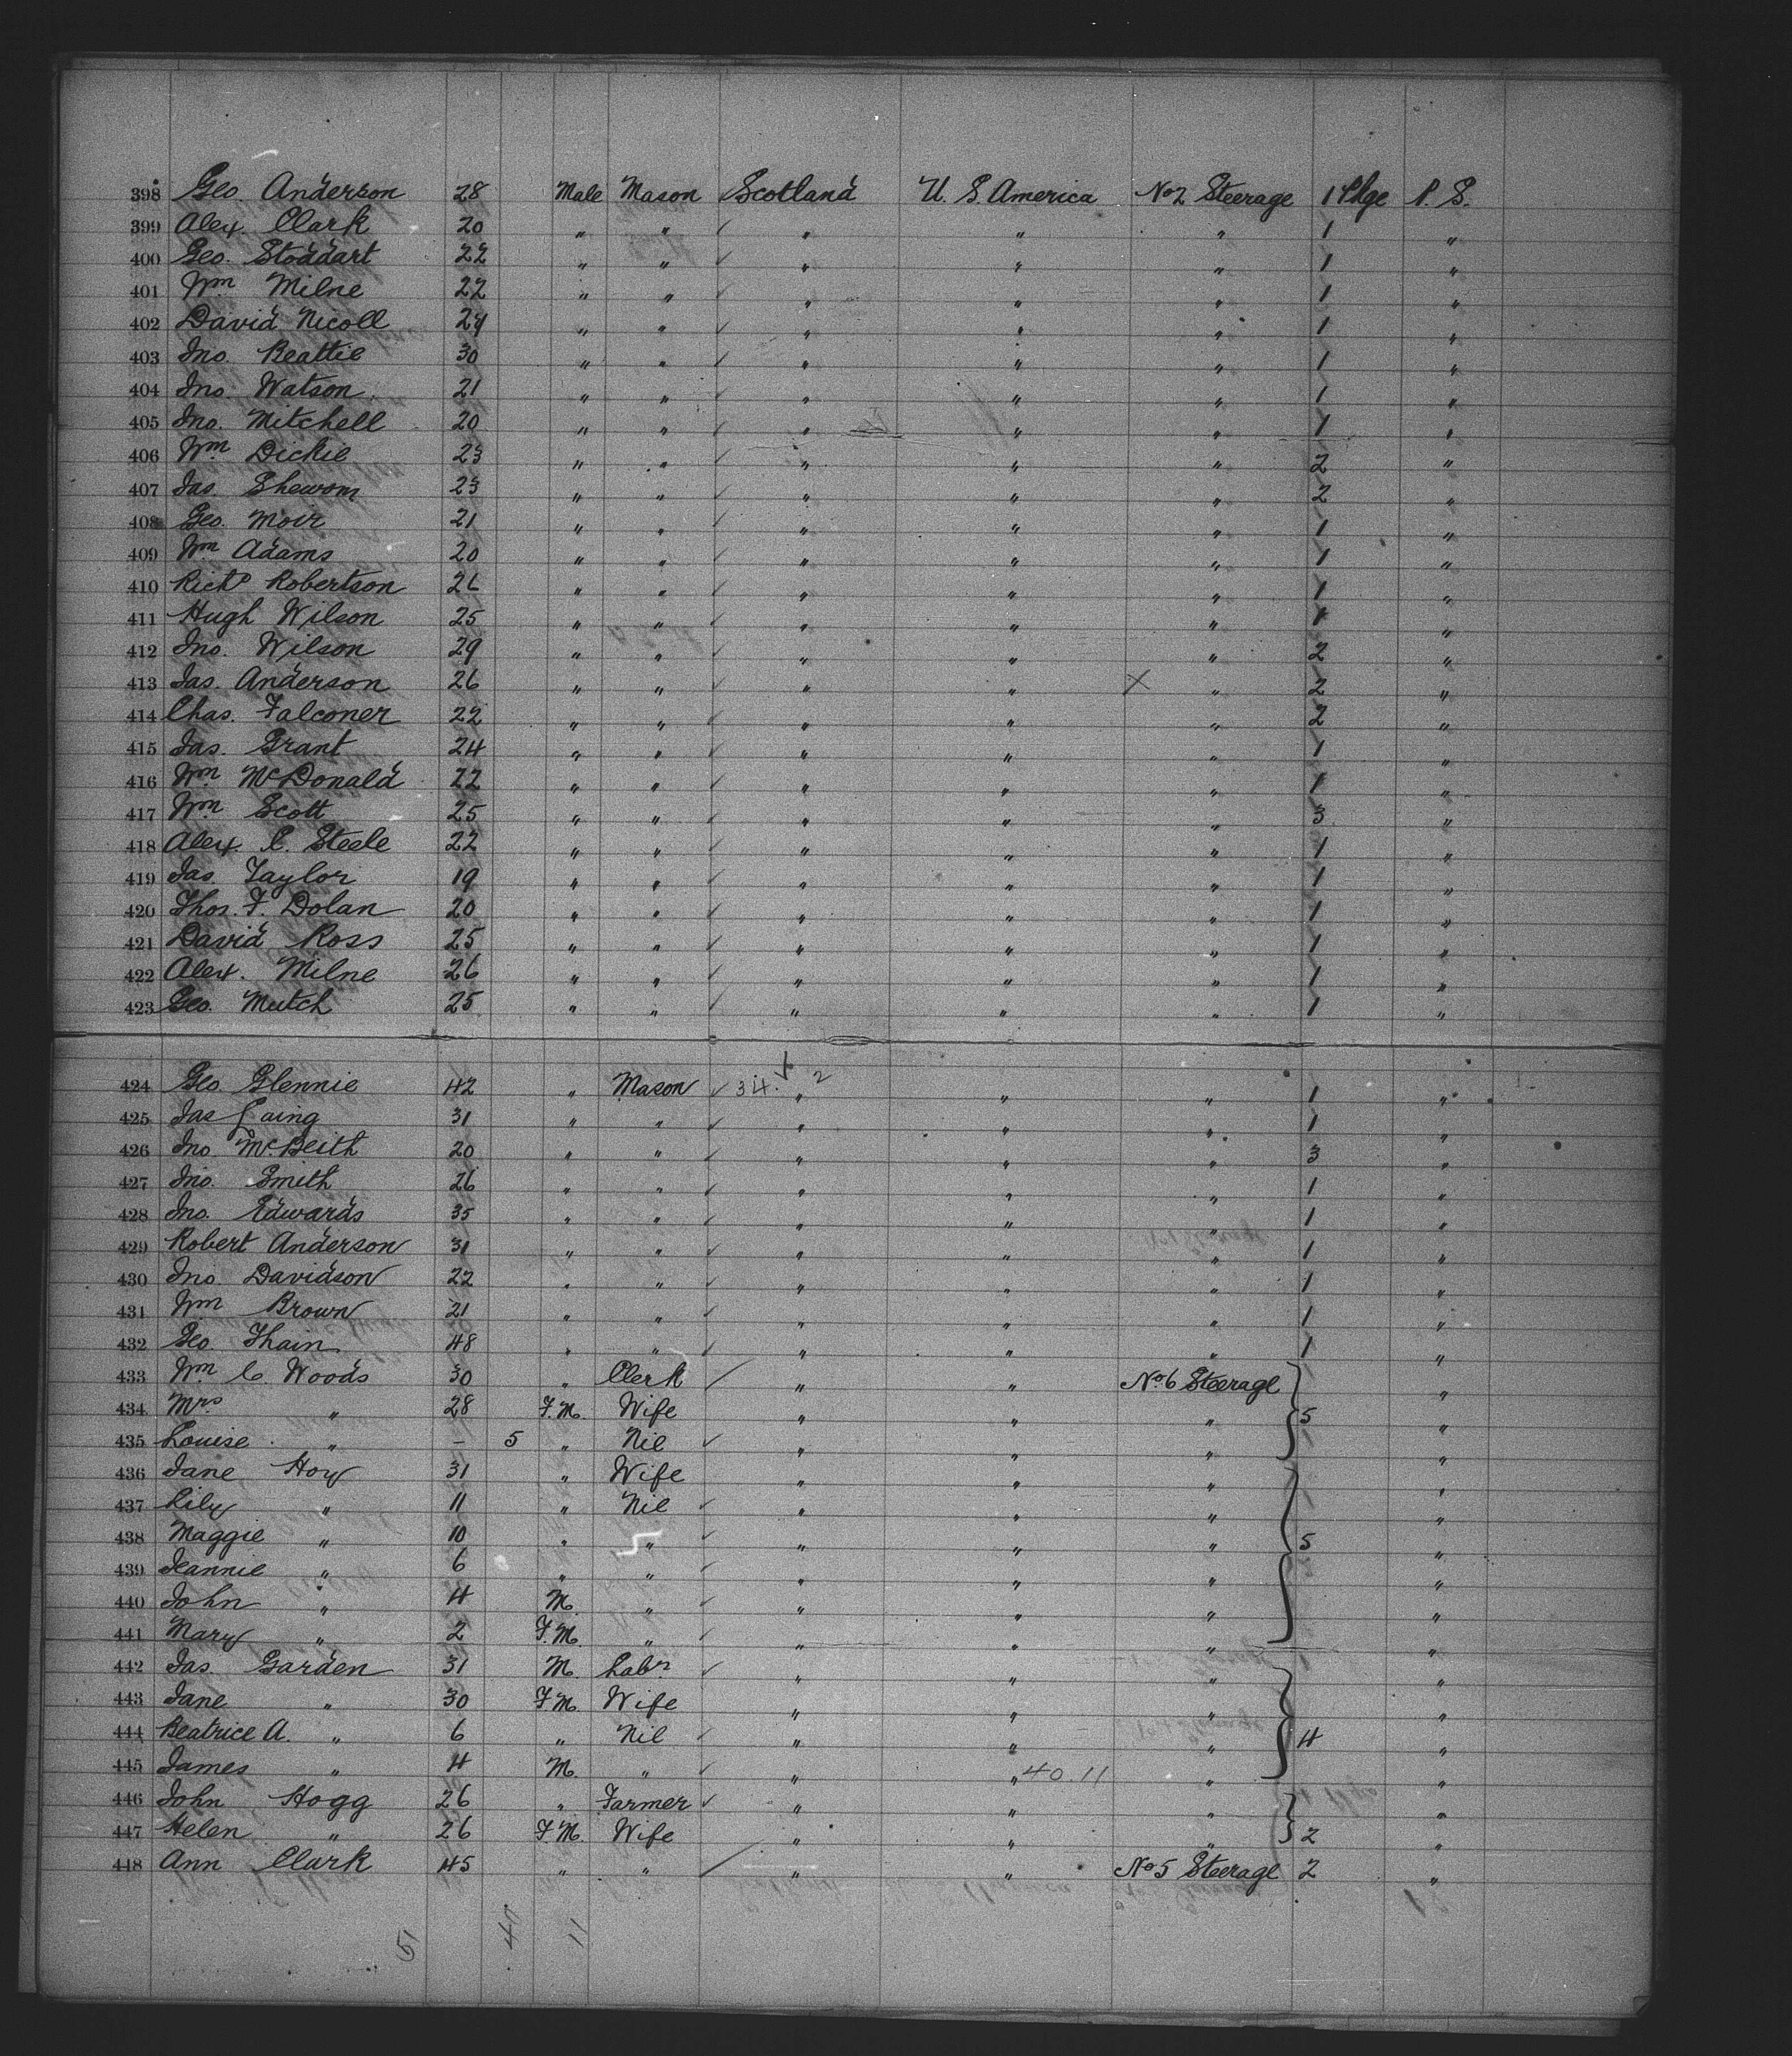 398 Geo. Anderson 28 Male Mason Scotland U. S. America No 2 Steerage 1 Pkge P. S.
399 Alex. Clark 20 " " " " " 1 "
400 Geo. Stoddart 22 " " " " " 1 "
401 Wm Milne 22 " " " " " 1 "
402 David Nicoll 24 " " " " " 1 "
403 Jno. Beattie 30 " " " " " 1 "
404 Jno. Watson 21 " " " " " 1 "
405 Jno. Mitchell 20 " " " " " 1 "
406 Wm Dickie 23 " " " " " 2 "
407 Jas. Shewom 23 " " " " " 2 "
408 Geo. Moir 21 " " " " " 1 "
409 Wm Adams 20 " " " " " 1 "
410 Richd Robertson 26 " " " " " 1 "
411 Hugh Wilson 25 " " " " " 1 "
412 Jno. Wilson 29 " " " " " 2 "
413 Jas. Anderson 26 " " " " X " 2 "
414 Chas. Falconer 22 " " " " " 2 "
415 Jas. Grant 24 " " " " " 1 "
416 Wm McDonald 22 " " " " " 1 "
417 Wm Scott 25 " " " " " 3 "
418 Alex. C. Steele 22 " " " " " 1 "
419 Jas. Taylor 19 " " " " " 1 "
420 Thos. F. Dolan 20 " " " " " 1 "
421 David Ross 25 " " " " " 1 "
422 Alex. Milne 26 " " " " " 1 "
423 Geo. Mutch 25 " " " " " 1 "
424 Geo. Glennie 42 " Mason 34. 2 " " " 1 "
425 Jas Laing 31 " " " " " 1 "
426 Jno. McBeith 20 " " " " " 3 "
427 Jno. Smith 26 " " " " " 1 "
428 Jno. Edwards 35 " " " " " 1 "
429 Robert Anderson 31 " " " " " 1 "
430 Jno. Davidson 22 " " " " " 1 "
431 Wm Brown 21 " " " " " 1 "
432 Geo. Thain 48 " " " " " 1 "
433 Wm C. Woods 30 " Clerk " " No 6 Steerage "
434 Mrs " 28 F.M. Wife " " " 5 "
435 Louise " - 5 " Nil " " " "
436 Jane Hoy 31 " Wife " " " "
437 Lily " 11 " Nil " " " "
438 Maggie " 10 " " " " " 5 "
439 Jeannie " 6 " " " " " "
440 John " 4 M. " " " " "
441 Mary " 2 F.M. " " " " "
442 Jas. Garden 31 M. Labr " " " "
443 Jane " 30 F.M. Wife " " " "
444 Beatrice A. " 6 " Nil " " " 4 "
445 James " 4 M. " " " 40.11 " "
446 John Hogg 26 " Farmer " " " "
447 Helen " 26 F.M. Wife " " " 2 "
448 Ann Clark 45 " " " " No 5 Steerage 2 "
51 40 11